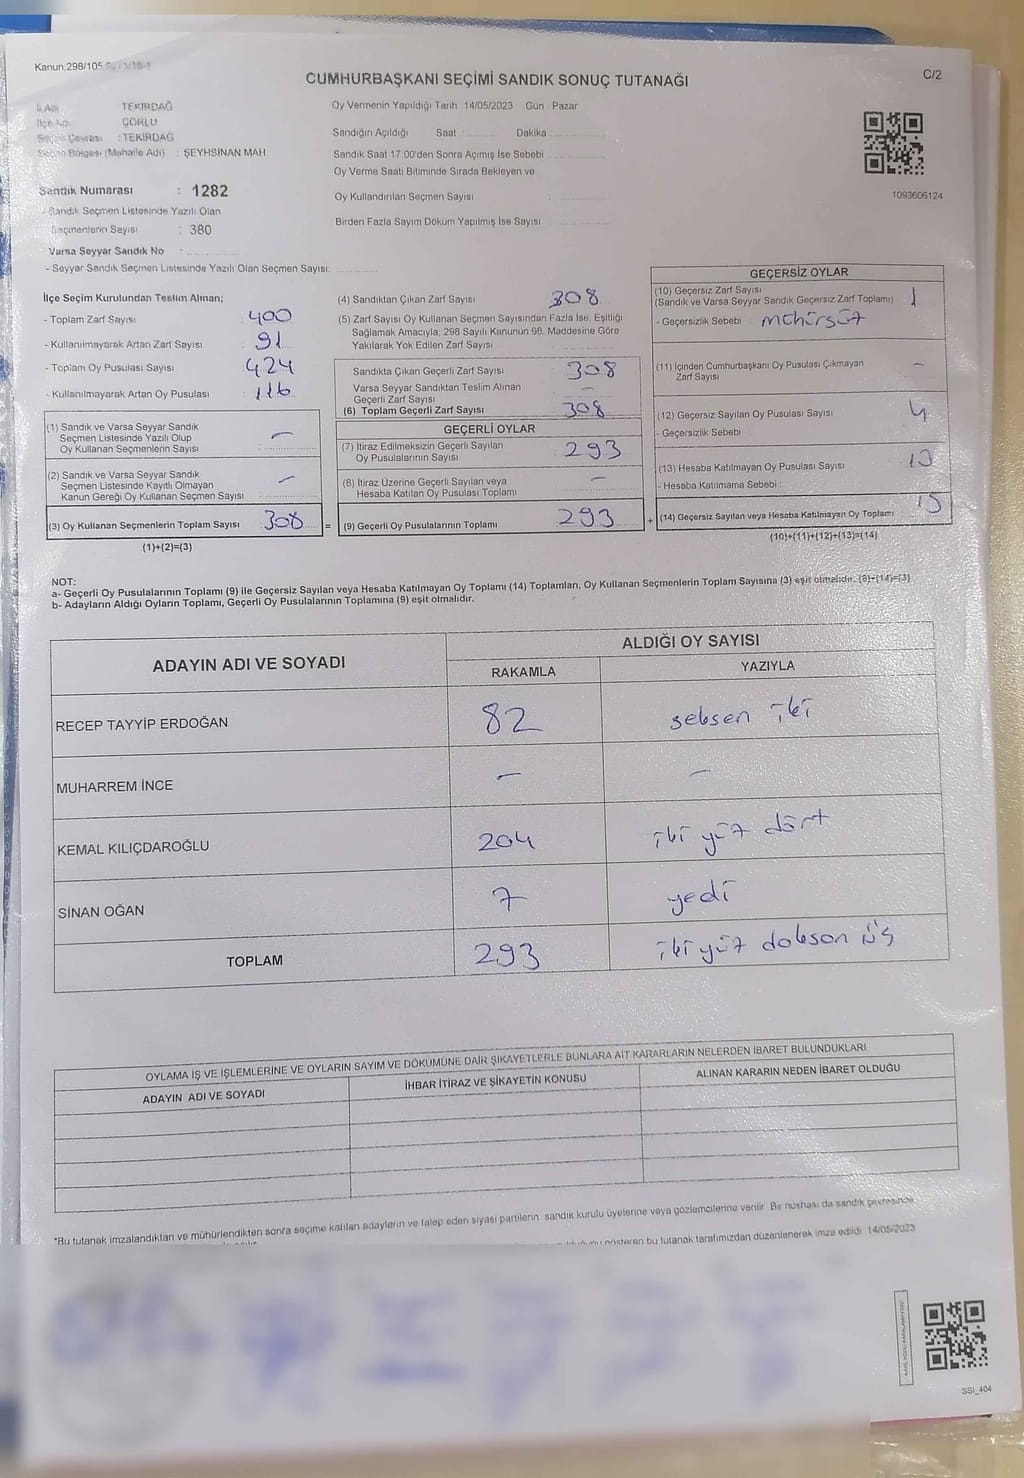 Kanun:298/105
C/2
CUMHURBAŞKANI SEÇİMİ SANDIK SONUÇ TUTANAĞI
İl Adı TEKİRDAĞ
İlçe Adı ÇORLU
Seçim Çevresi : TEKİRDAĞ
Seçim Bölgesi (Mahalle Adı) : ŞEYHSİNAN MAH.
Oy Vermenin Yapıldığı Tarih 14/05/2023 Gün Pazar
Sandığın Açıldığı Saat : Dakika
Sandık Saat 17:00'den Sonra Açımış İse Sebebi
Oy Verme Saati Bitiminde Sırada Bekleyen ve
Oy Kullandırılan Seçmen Sayısı :
Birden Fazla Sayım Döküm Yapılmış İse Sayısı
1093606124
Sandık Numarası : 1282
- Sandık Seçmen Listesinde Yazılı Olan
Seçmenlerin Sayısı : 380
Varsa Seyyar Sandık No :
- Seyyar Sandık Seçmen Listesinde Yazılı Olan Seçmen Sayısı:
İlçe Seçim Kurulundan Teslim Alınan;
- Toplam Zarf Sayısı : 400
- Kullanılmayarak Artan Zarf Sayısı : 91
- Toplam Oy Pusulası Sayısı : 424
- Kullanılmayarak Artan Oy Pusulası : 116
(1) Sandık ve Varsa Seyyar Sandık
Seçmen Listesinde Yazılı Olup
Oy Kullanan Seçmenlerin Sayısı : –
(2) Sandık ve Varsa Seyyar Sandık
Seçmen Listesinde Kayıtlı Olmayan
Kanun Gereği Oy Kullanan Seçmen Sayısı : –
(3) Oy Kullanan Seçmenlerin Toplam Sayısı 308 =
(1)+(2)=(3)
(4) Sandıktan Çıkan Zarf Sayısı 308
(5) Zarf Sayısı Oy Kullanan Seçmen Sayısından Fazla İse, Eşitliği
Sağlamak Amacıyla, 298 Sayılı Kanunun 98. Maddesine Göre
Yakılarak Yok Edilen Zarf Sayısı
Sandıkta Çıkan Geçerli Zarf Sayısı 308
Varsa Seyyar Sandıktan Teslim Alınan
Geçerli Zarf Sayısı –
(6) Toplam Geçerli Zarf Sayısı 308
GEÇERLİ OYLAR
(7) İtiraz Edilmeksizin Geçerli Sayılan
Oy Pusulalarının Sayısı 293
(8) İtiraz Üzerine Geçerli Sayılan veya
Hesaba Katılan Oy Pusulası Toplamı –
(9) Geçerli Oy Pusulalarının Toplamı 293 +
GEÇERSİZ OYLAR
(10) Geçersiz Zarf Sayısı
(Sandık ve Varsa Seyyar Sandık Geçersiz Zarf Toplamı) 1
- Geçersizlik Sebebi : mühürsüz
(11) İçinden Cumhurbaşkanı Oy Pusulası Çıkmayan
Zarf Sayısı –
(12) Geçersiz Sayılan Oy Pusulası Sayısı 4
- Geçersizlik Sebebi :
(13) Hesaba Katılmayan Oy Pusulası Sayısı
- Hesaba Katılmama Sebebi :
(14) Geçersiz Sayılan veya Hesaba Katılmayan Oy Toplamı 15
(10)+(11)+(12)+(13)=(14)
NOT:
a- Geçerli Oy Pusulalarının Toplamı (9) ile Geçersiz Sayılan veya Hesaba Katılmayan Oy Toplamı (14) Toplamları, Oy Kullanan Seçmenlerin Toplam Sayısına (3) eşit olmalıdır. (9)+(14)=(3)
b- Adayların Aldığı Oyların Toplamı, Geçerli Oy Pusulalarının Toplamına (9) eşit olmalıdır.
ADAYIN ADI VE SOYADI
ALDIĞI OY SAYISI
RAKAMLA YAZIYLA
RECEP TAYYİP ERDOĞAN 82 seksen iki
MUHARREM İNCE – –
KEMAL KILIÇDAROĞLU 204 iki yüz dört
SİNAN OĞAN 7 yedi
TOPLAM 293 iki yüz doksan üç
OYLAMA İŞ VE İŞLEMLERİNE VE OYLARIN SAYIM VE DÖKÜMÜNE DAİR ŞİKAYETLERLE BUNLARA AİT KARARLARIN NELERDEN İBARET BULUNDUKLARI
ADAYIN ADI VE SOYADI İHBAR İTİRAZ VE ŞİKAYETİN KONUSU ALINAN KARARIN NEDEN İBARET OLDUĞU
*Bu tutanak imzalandıktan ve mühürlendikten sonra seçime katılan adayların ve talep eden siyasi partilerin sandık kurulu üyelerine veya gözlemcilerine verilir. Bir nüshası da sandık çevresinde
gösteren bu tutanak tarafımızdan düzenlenerek imza edildi. 14/05/2023
SSI_404